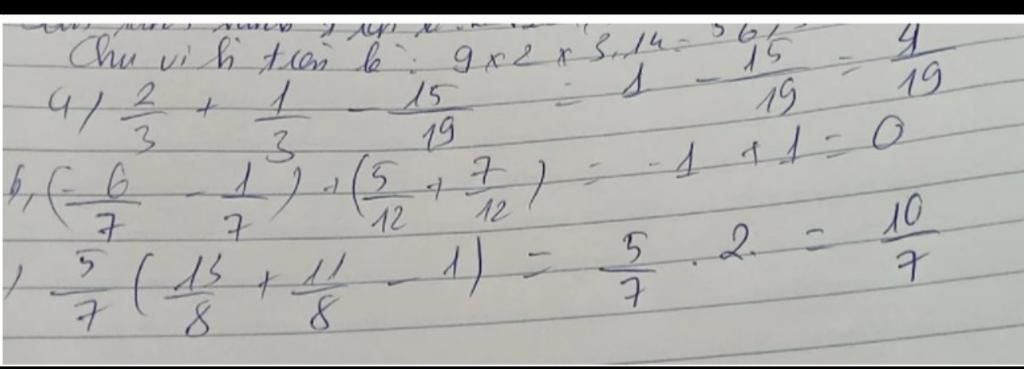 Chu vi h tròn là: 9 x 2 x 3,14 =
a) 2/3 + 1/3 - 15/19 = 1 - 15/19 = 4/19
b, (-6/7 - 1/7) + (5/12 + 7/12) = -1 + 1 = 0
) 5/7 (13/8 + 11/8 - 1) = 5/7 . 2 = 10/7